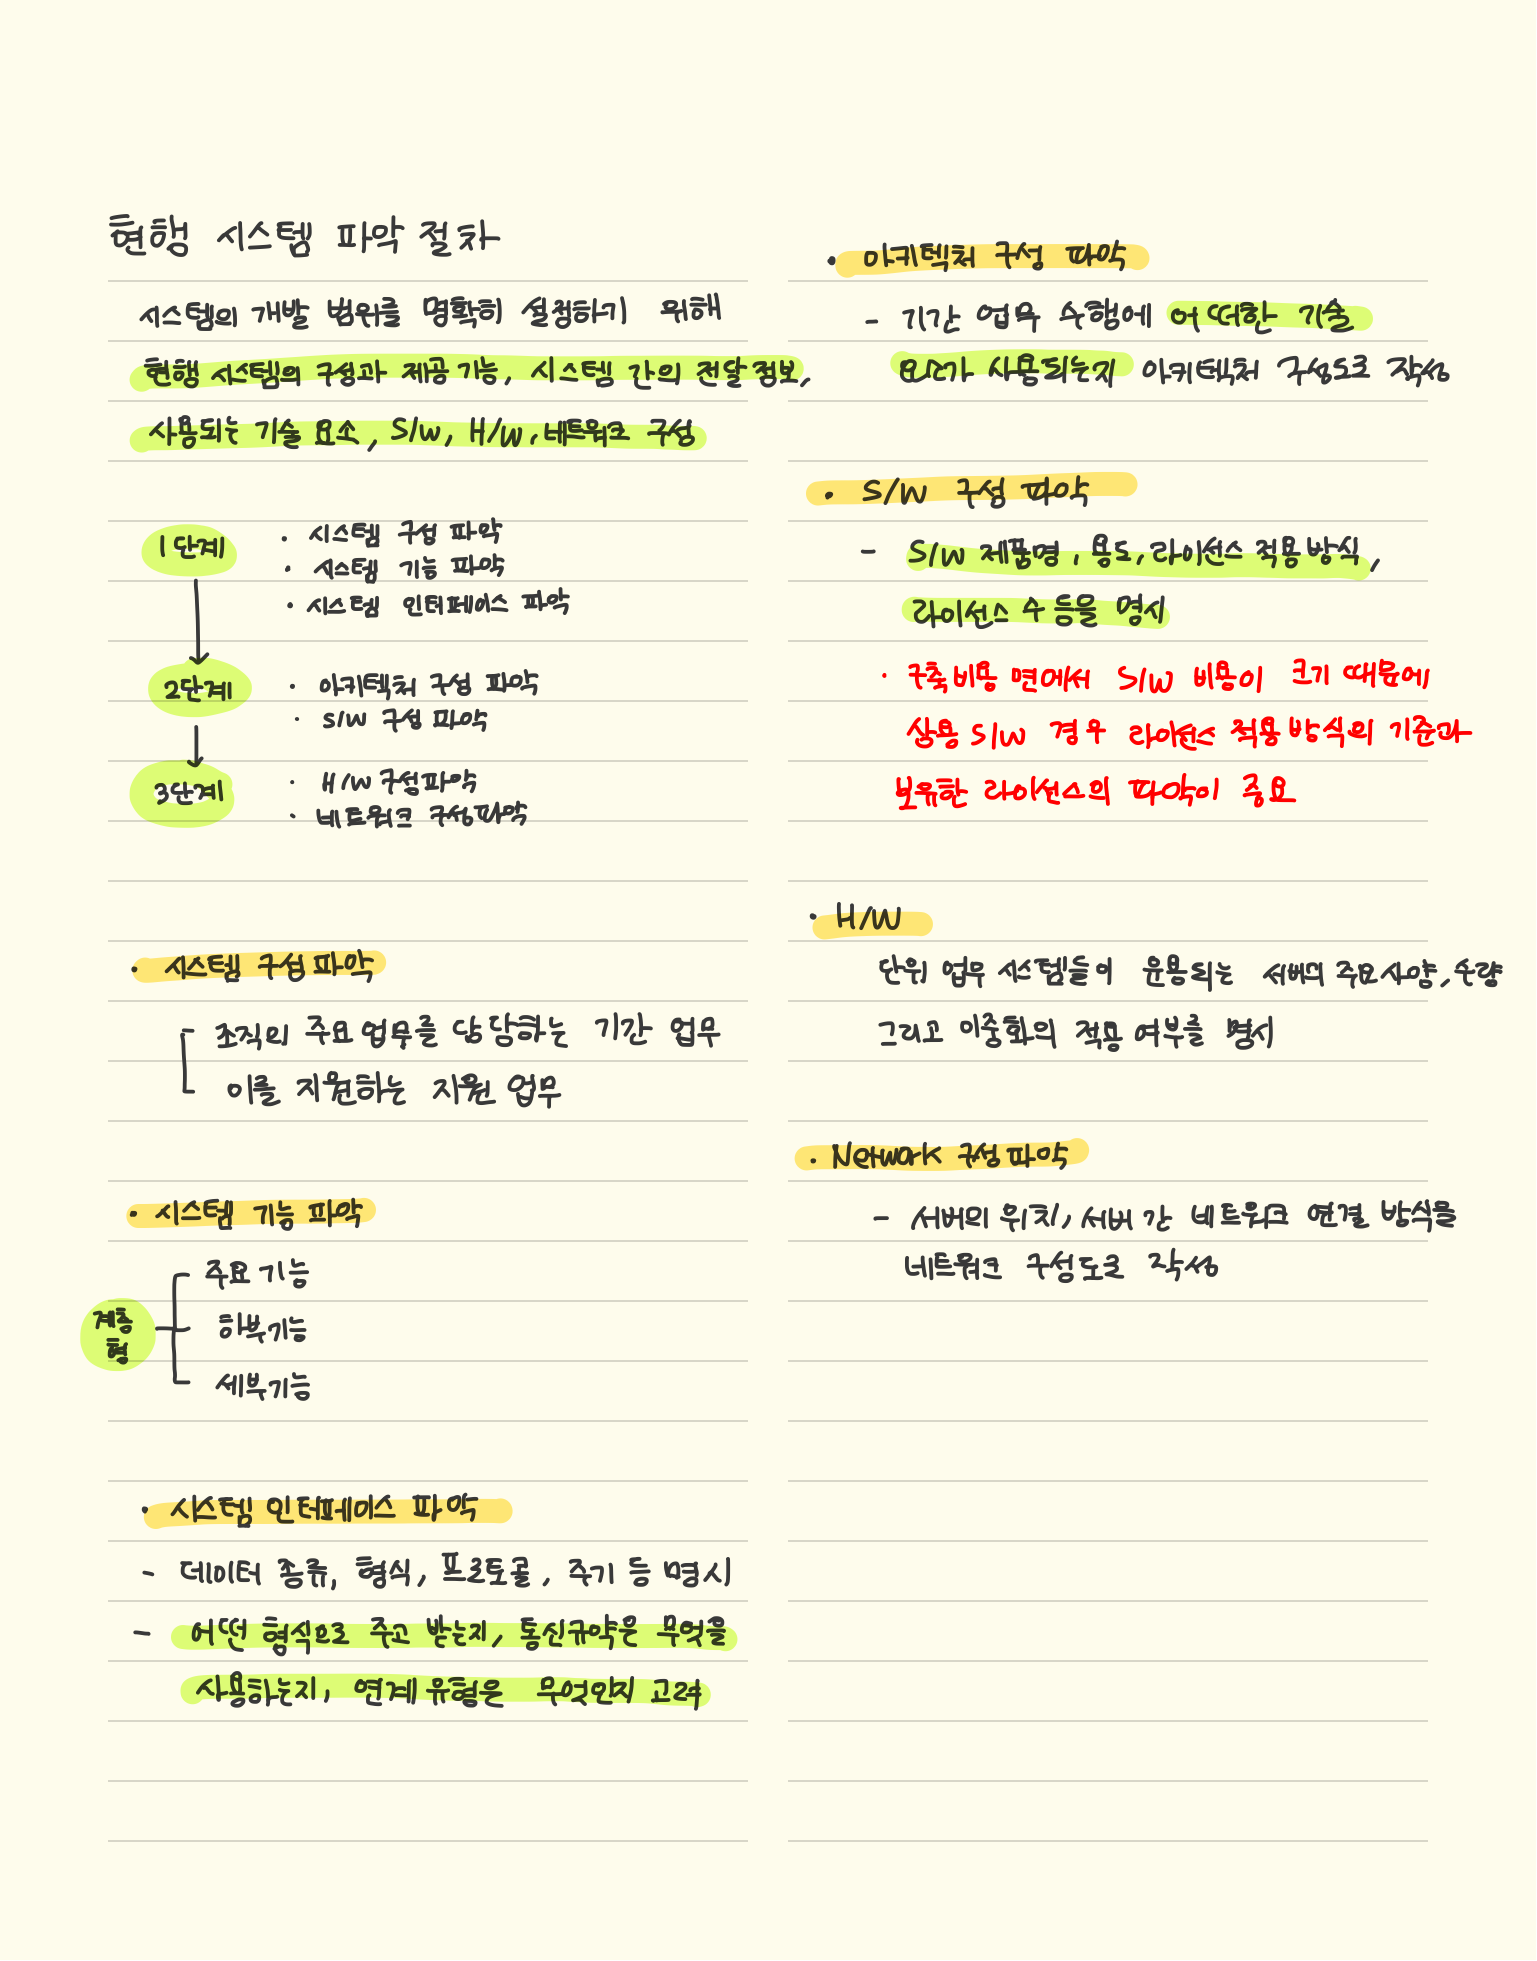 현행 시스템 파악 절차
시스템의 개발 범위를 명확히 설정하기 위해
현행 시스템의 구성과 제공 기능, 시스템 간의 전달 정보,
사용되는 기술 요소, S/W, H/W, 네트워크 구성
1단계
· 시스템 구성 파악
· 시스템 기능 파악
· 시스템 인터페이스 파악
2단계
· 아키텍처 구성 파악
· S/W 구성 파악
3단계
· H/W 구성파악
· 네트워크 구성파악
· 시스템 구성 파악
조직의 주요 업무를 담당하는 기간 업무
이를 지원하는 지원 업무
· 시스템 기능 파악
계층형
주요 기능
하부기능
세부기능
· 시스템 인터페이스 파악
- 데이터 종류, 형식, 프로토콜, 주기 등 명시
- 어떤 형식으로 주고 받는지, 통신규약은 무엇을
사용하는지, 연계 유형은 무엇인지 고려
· 아키텍처 구성 파악
- 기간 업무 수행에 어떠한 기술
요소가 사용되는지 아키텍처 구성도로 작성
· S/W 구성 파악
- S/W 제품명, 용도, 라이선스 적용방식,
라이선스 수 등을 명시
· 구축비용 면에서 S/W 비용이 크기 때문에
상용 S/W 경우 라이선스 적용 방식의 기준과
보유한 라이선스의 파악이 중요
· H/W
단위 업무 시스템들이 운용되는 서버의 주요사양, 수량
그리고 이중화의 적용 여부를 명시
· Network 구성파악
- 서버의 위치, 서버 간 네트워크 연결 방식을
네트워크 구성도로 작성